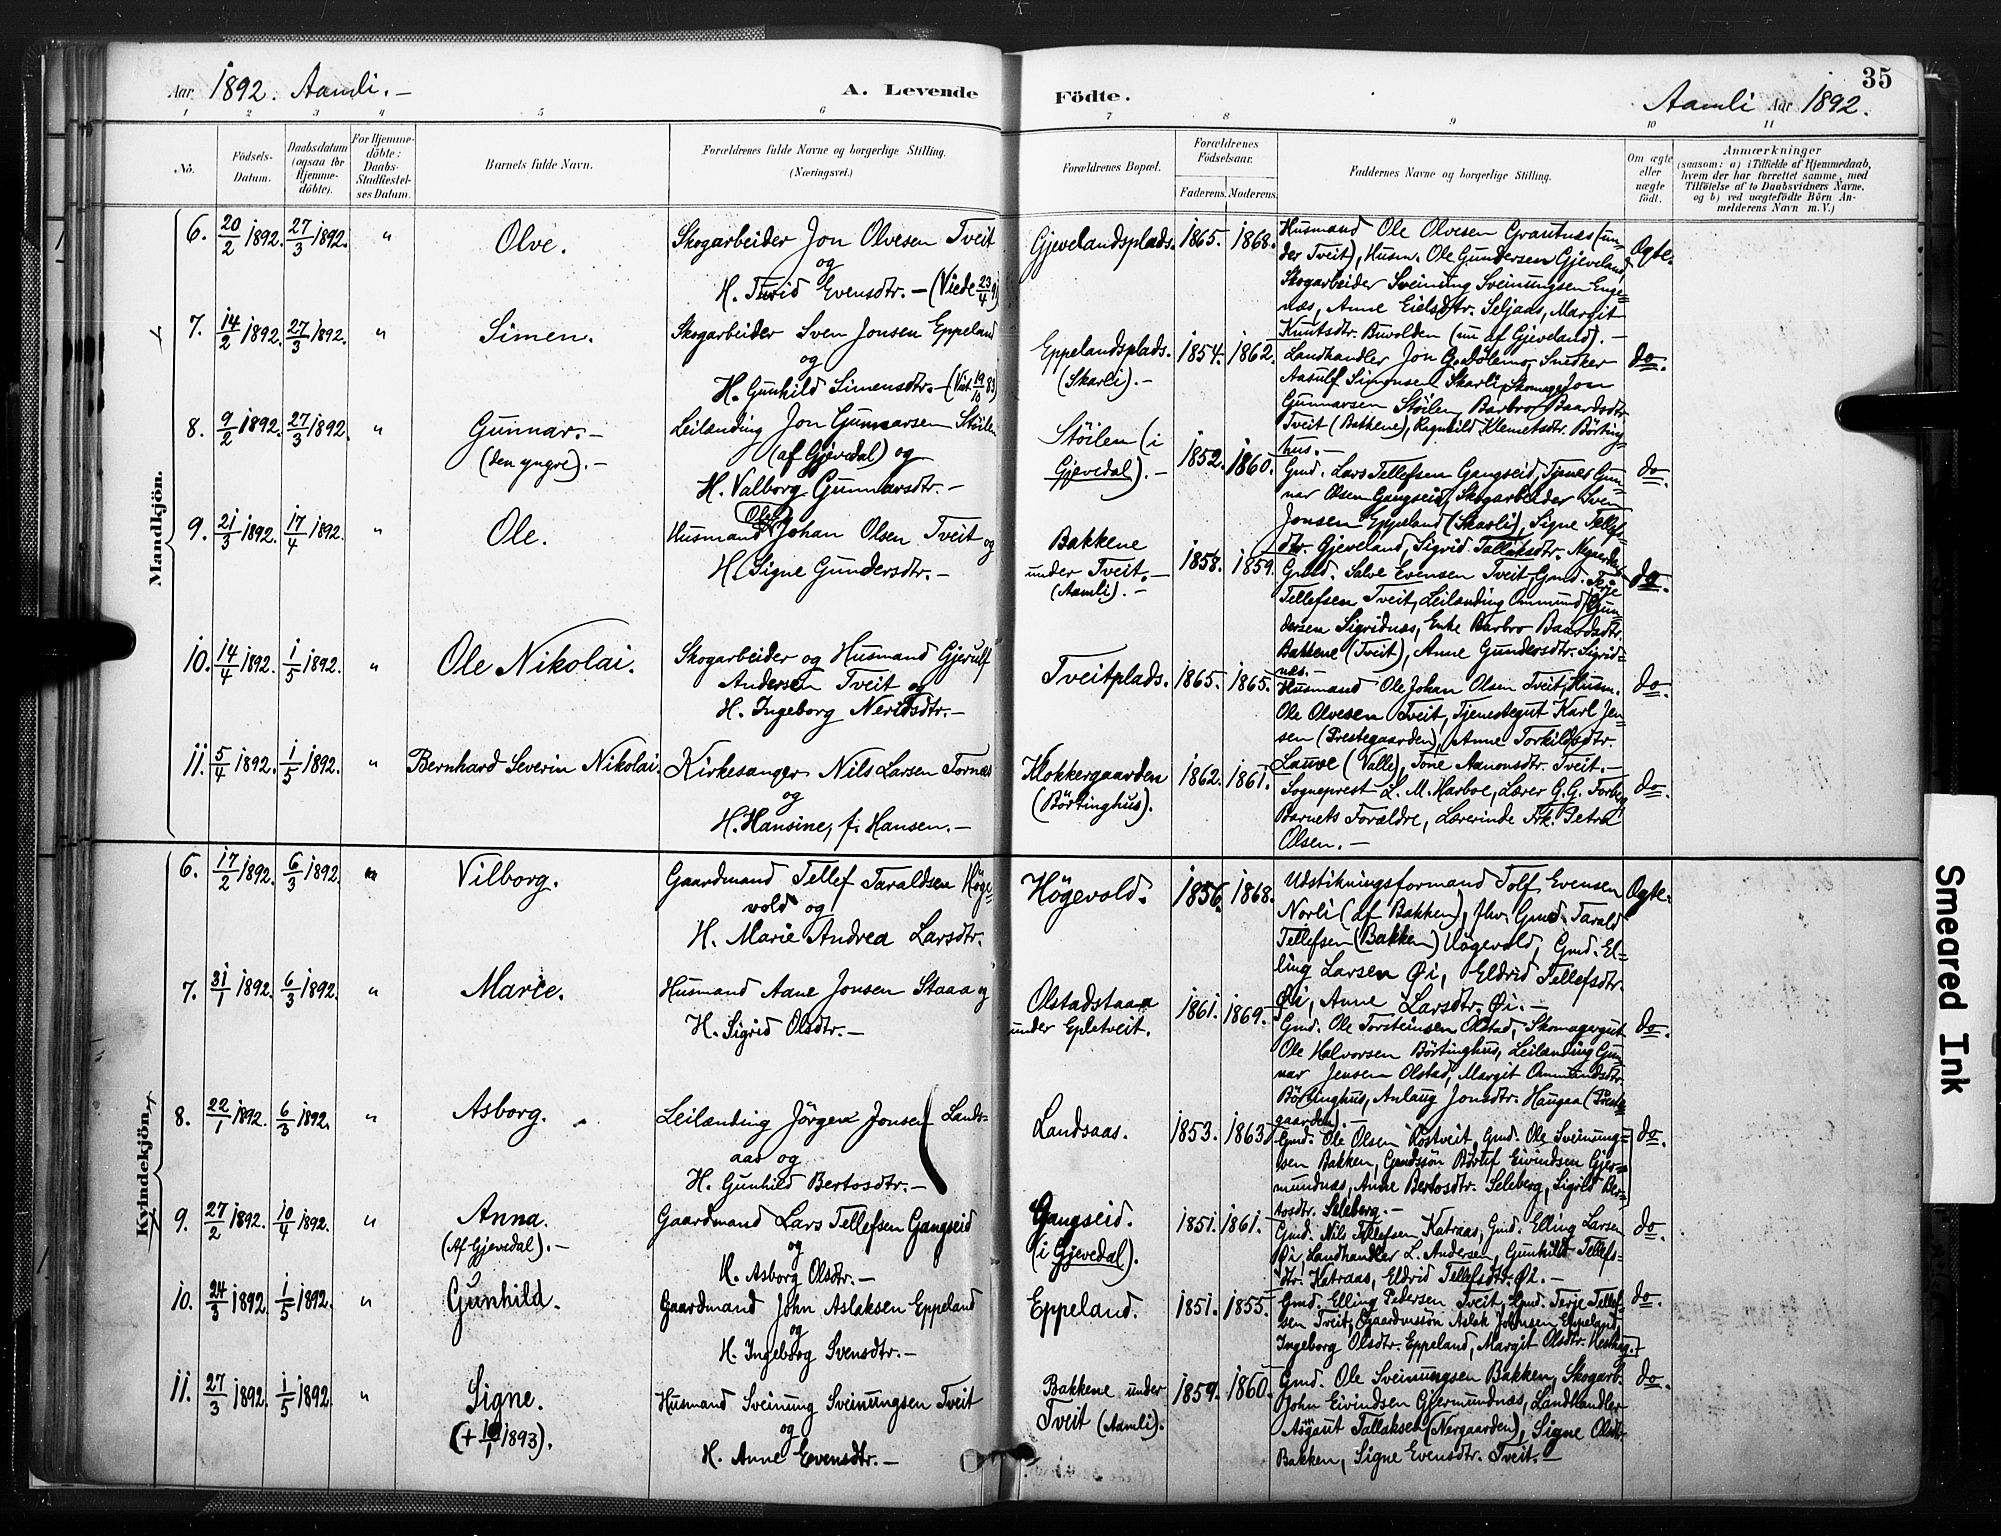 Aar 1892. Aamli. —
A. Levende
Födte.
Aamli Aar 1892.
35
1 2 3 4 5 6 7 8 9 10 11
No.
Födsels-Datum.
Daabsdatum (ogsaa for Hjemme-döbte).
For Hjemme-döbte: Daabs-Stadfæstel-ses Datum.
Barnets fulde Navn.
Forældrenes fulde Navne og borgerlige Stilling. (Næringsvei.)
Forældrenes Bopæl.
Forældrenes Födselsaar.
Faderens. Moderens.
Faddernes Navne og borgerlige Stilling.
Om ægte eller uægte født.
Anmærkninger
(saasom: a) i Tilfælde af Hjemmedaab,
hvem der har forrettet samme, med
Tilföielse af to Daabsvidners Navne,
og b) ved uægtefödte Börn An-
melderens Navn m.V.)
Mandkjön.
6. 20/2 1892. 27/3 1892. " Olve.
Skogarbeider Jon Olvesen Tveit
og
H. Turid Evensdtr. — (Viede 23/4 91)
Gjevelandsplads. 1865. 1868.
Husmand Ole Olvesen Grautnæs (un-
der Tveit), Husm. Ole Gundersen Gjeveland,
Skogarbeider Sveinung Sveinungsen Enge-
næs, Anne Eielsdtr. Seljaas, Margit
Knutsdtr. Buvolden (nu af Gjeveland). —
Ægte.
7. 14/2 1892. 27/3 1892. " Simen.
Skogarbeider Sven Jonsen Eppeland
og
H. Gunhild Simensdtr. — (Viet 19/10 83)
Eppelandsplads. (Skarli). — 1854. 1862.
Landhandler Jon G. Dölemo, Snedker
Aasulf Simonsen Skarli, Skomager Jon
Gunnarsen Stöilen, Barbro Baardsdtr.
Tveit (Bakkene), Ragnhild Klemetsdtr. Börting-
hus. —
do.
8. 9/2 1892. 27/3 1892. " Gunnar. —
(den yngre). —
Leilænding Jon Gunnarsen Stöilen
(af Gjevedal) og
H. Valborg Gunnarsdtr. —
Stöilen (i Gjevedal). — 1852. 1860.
Gmd. Lars Tellefsen Gangseid, Gun-
nar Olsen Gangseid, Skogarbeider Sven
Jonsen Eppeland (Skarli), Signe Tellefs-
dtr. Gjeveland, Sigrid Tallaksdtr.
do.
9. 21/3 1892. 17/4 1892. " Ole.
Husmand Ole Johan Olsen Tveit og
H. Signe Gundersdtr. —
Bakkene under Tveit. — (Aamli). — 1858. 1859.
Gmd. Salve Evensen Tveit, Gmd. Terje
Tellefsen Tveit, Leilænding Ommund Gun-
dersen Sigridnæs, Enke Barbro Baardsdtr.
Bakkene (Tveit), Anne Gundersdtr. Sigrid-
næs. —
do.
10. 14/4 1892. 1/5 1892. " Ole Nikolai.
Skogarbeider og Husmand Gjerulf
Andersen Tveit og
H. Ingeborg Neridsdtr. —
Tveitplads. 1865. 1865.
Husmand Ole Johan Olsen Tveit, Husm.
Ole Olvesen Tveit, Tjenestegut Karl Jen-
sen (Prestegaarden), Anne Torkildsdtr.
Lauve (Valle), Tone Aanonsdtr. Tveit. —
do.
11. 5/4 1892. 1/5 1892. " Bernhard Severin Nikolai.
Kirkesanger Nils Larsen Tornæs
og
H. Hansine, f. Hansen. —
Klokkergaarden (Börtinghus). 1862. 1861.
Sogneprest L. M. Harboe, Lærer G. G.
Barnets Forældre, Lærerinde Frk. Petra
Olsen. —
do.
Kvindekjön.
6. 17/2 1892. 6/3 1892. " Vilborg.
Gaardmand Tellef Taraldsen Höge-
vold og
H. Marie Andrea Larsdtr.
Högevold. 1856. 1868.
Udstikningsformand Tolf Evensen
Norli (af Bakken), fhv. Gmd. Tarald
Tellefsen (Bakken) Högevold, Gmd. El-
ling Larsen Øi, Eldrid Tellefsdtr.
Øi, Anne Larsdtr. Øi. —
Ægte.
7. 31/1 1892. 6/3 1892. " Marie.
Husmand Aane Jonsen Staaa og
H. Sigrid Olsdtr. —
Olstadstaaa under Epletveit. 1861. 1869.
Gmd. Ole Torsteinsen Olstad, Skomagergut
Ole Halvorsen Börtinghus, Leilænding Gun-
nar Jensen Olstad, Margit Ommundsdtr.
Börtinghus, Anlaug Jonsdtr. Haugaa (Preste-
gaarden). —
do.
8. 22/1 1892. 6/3 1892. " Asborg.
Leilænding Jörgen Jonsen Lands-
aas og
H. Gunhild Bertosdtr. —
Landsaas. 1853. 1863
Gmd. Ole Olsen Rostveit, Gmd. Ole Sveinung-
sen Bakken, Gaardssön Börtil Eivindsen Gjer-
mundnæs, Anne Bertosdtr. Seleberg, Sigrid Ber-
tosdtr. Seleberg. —
do.
9. 27/2 1892. 10/4 1892. " Anna.
(Af Gjevedal). —
Gaardmand Lars Tellefsen Gangseid
og
H. Asborg Olsdtr. —
Gangseid. (i Gjevedal). 1851. 1861.
Gmd. Nils Tellefsen Katraas, Gmd. Elling Larsen
Øi, Landhandler L. Andersen, Gunhild Tellefs-
dtr. Katraas, Eldrid Tellefsdtr. Øi. —
do.
10. 24/3 1892. 1/5 1892. " Gunhild.
Gaardmand John Aslaksen Eppeland
og
H. Ingeborg Svensdtr. —
Eppeland. 1851. 1855.
Gmd. Elling Pedersen Tveit, Gmd. Terje Tellef-
sen Tveit, Gaardmssön Aslak Johnsen Eppeland,
Ingeborg Olsdtr. Eppeland, Margit Olsdtr.
do.
11. 27/3 1892. 1/5 1892. " Signe.
(+ 10/1 1893).
Husmand Sveinung Sveinungsen Tveit
og
H. Anne Evensdtr. —
Bakkene under Tveit (Aamli). 1859. 1860.
Gmd. Ole Sveinungsen Bakken, Skogarb.
John Eivindsen Gjermundnæs, Landhandler
Asgaut Tallaksen (Nergaarden), Signe Olsdtr.
Bakken, Signe Evensdtr. Tveit. —
do.
Smeared Ink